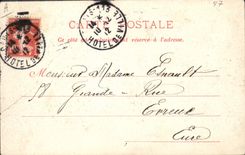 CARTE POSTALE
Ce côté est exclusivement réservé à l'adresse.
HOTEL DE VILLE
Monsieur Madame Esnault
58 Grande-Rue
Evreux
Eure